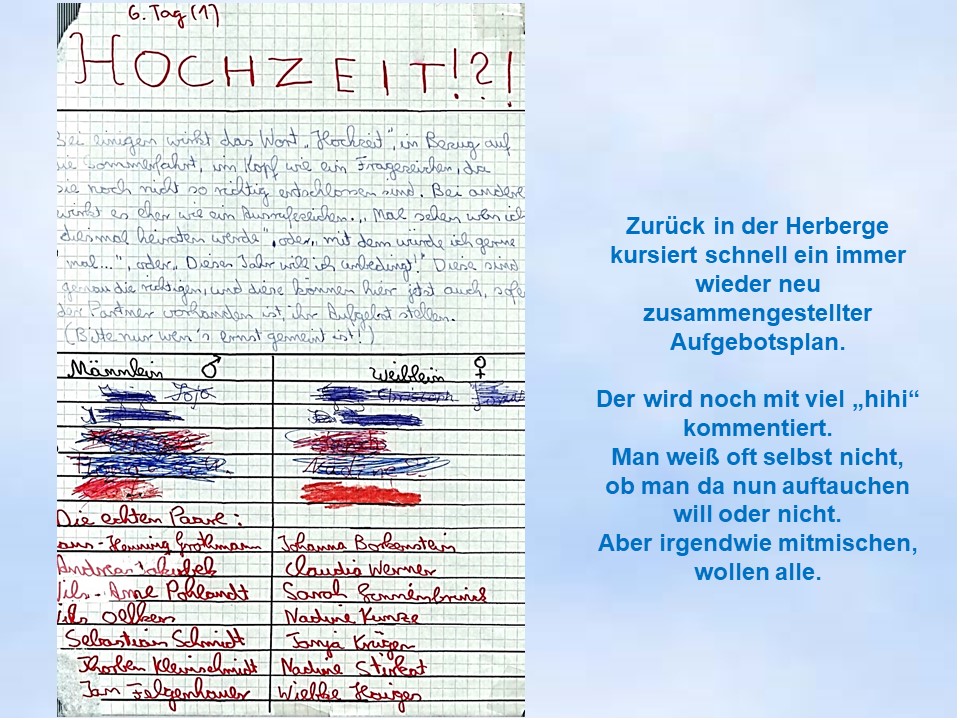 6. Tag (1)
HOCHZEIT!?!
Bei einigen wirkt das Wort „Hochzeit", in Bezug auf
die Sommerfahrt, im Kopf wie ein Fragezeichen, da
sie noch nicht so richtig entschlossen sind. Bei andere
wirkt es eher wie ein Ausrufezeichen. „Mal sehen wen ich
diesmal heiraten werde", oder „mit dem würde ich gerne
mal...", oder „Dieses Jahr will ich unbedingt!" Diese sind
genau die richtigen, und diese können hier jetzt auch, sofe
der Partner vorhanden ist, ihr Aufgebot stellen.
(Bitte nur wen's ernst gemeint ist!)
Männlein ♂ weiblein ♀
Jojo Christoph
Nadine
Die echten Paare:
ans-Henning Grothmann Johanna Borkenstein
Andreas Claudia Werner
ils-Arne Pohlandt Sarah
ils Oelkers Nadine Kunze
Sebastian Schmidt Tanja Krüger
Thorben Kleinschmidt Nadine
Jan Felgenhauer Wiebke
Zurück in der Herberge
kursiert schnell ein immer
wieder neu
zusammengestellter
Aufgebotsplan.
Der wird noch mit viel „hihi“
kommentiert.
Man weiß oft selbst nicht,
ob man da nun auftauchen
will oder nicht.
Aber irgendwie mitmischen,
wollen alle.